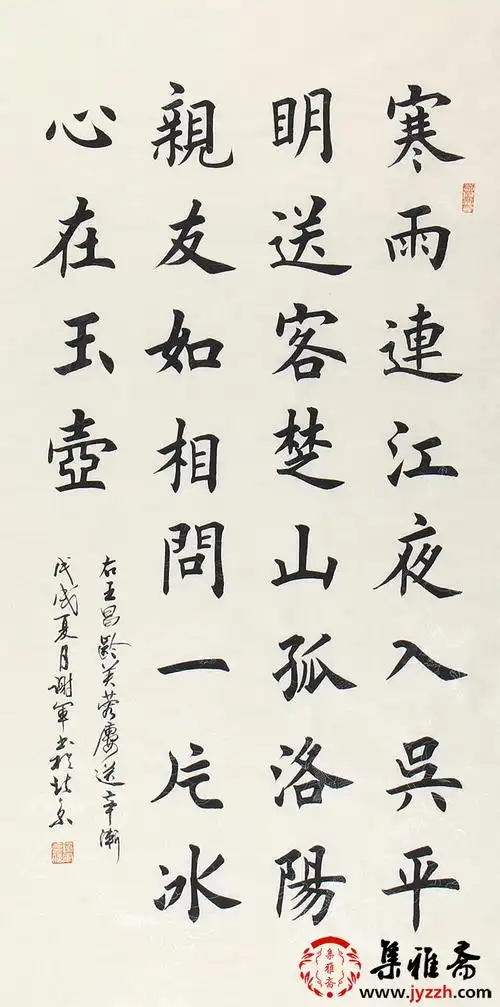 寒雨連江夜入吳平
明送客楚山孤洛陽
親友如相問一片冰
心在玉壺
右王昌齡芙蓉廔送辛漸
戊戌夏月謝軍書於北京
集雅斋
集雅斋
www.jyzzh.com